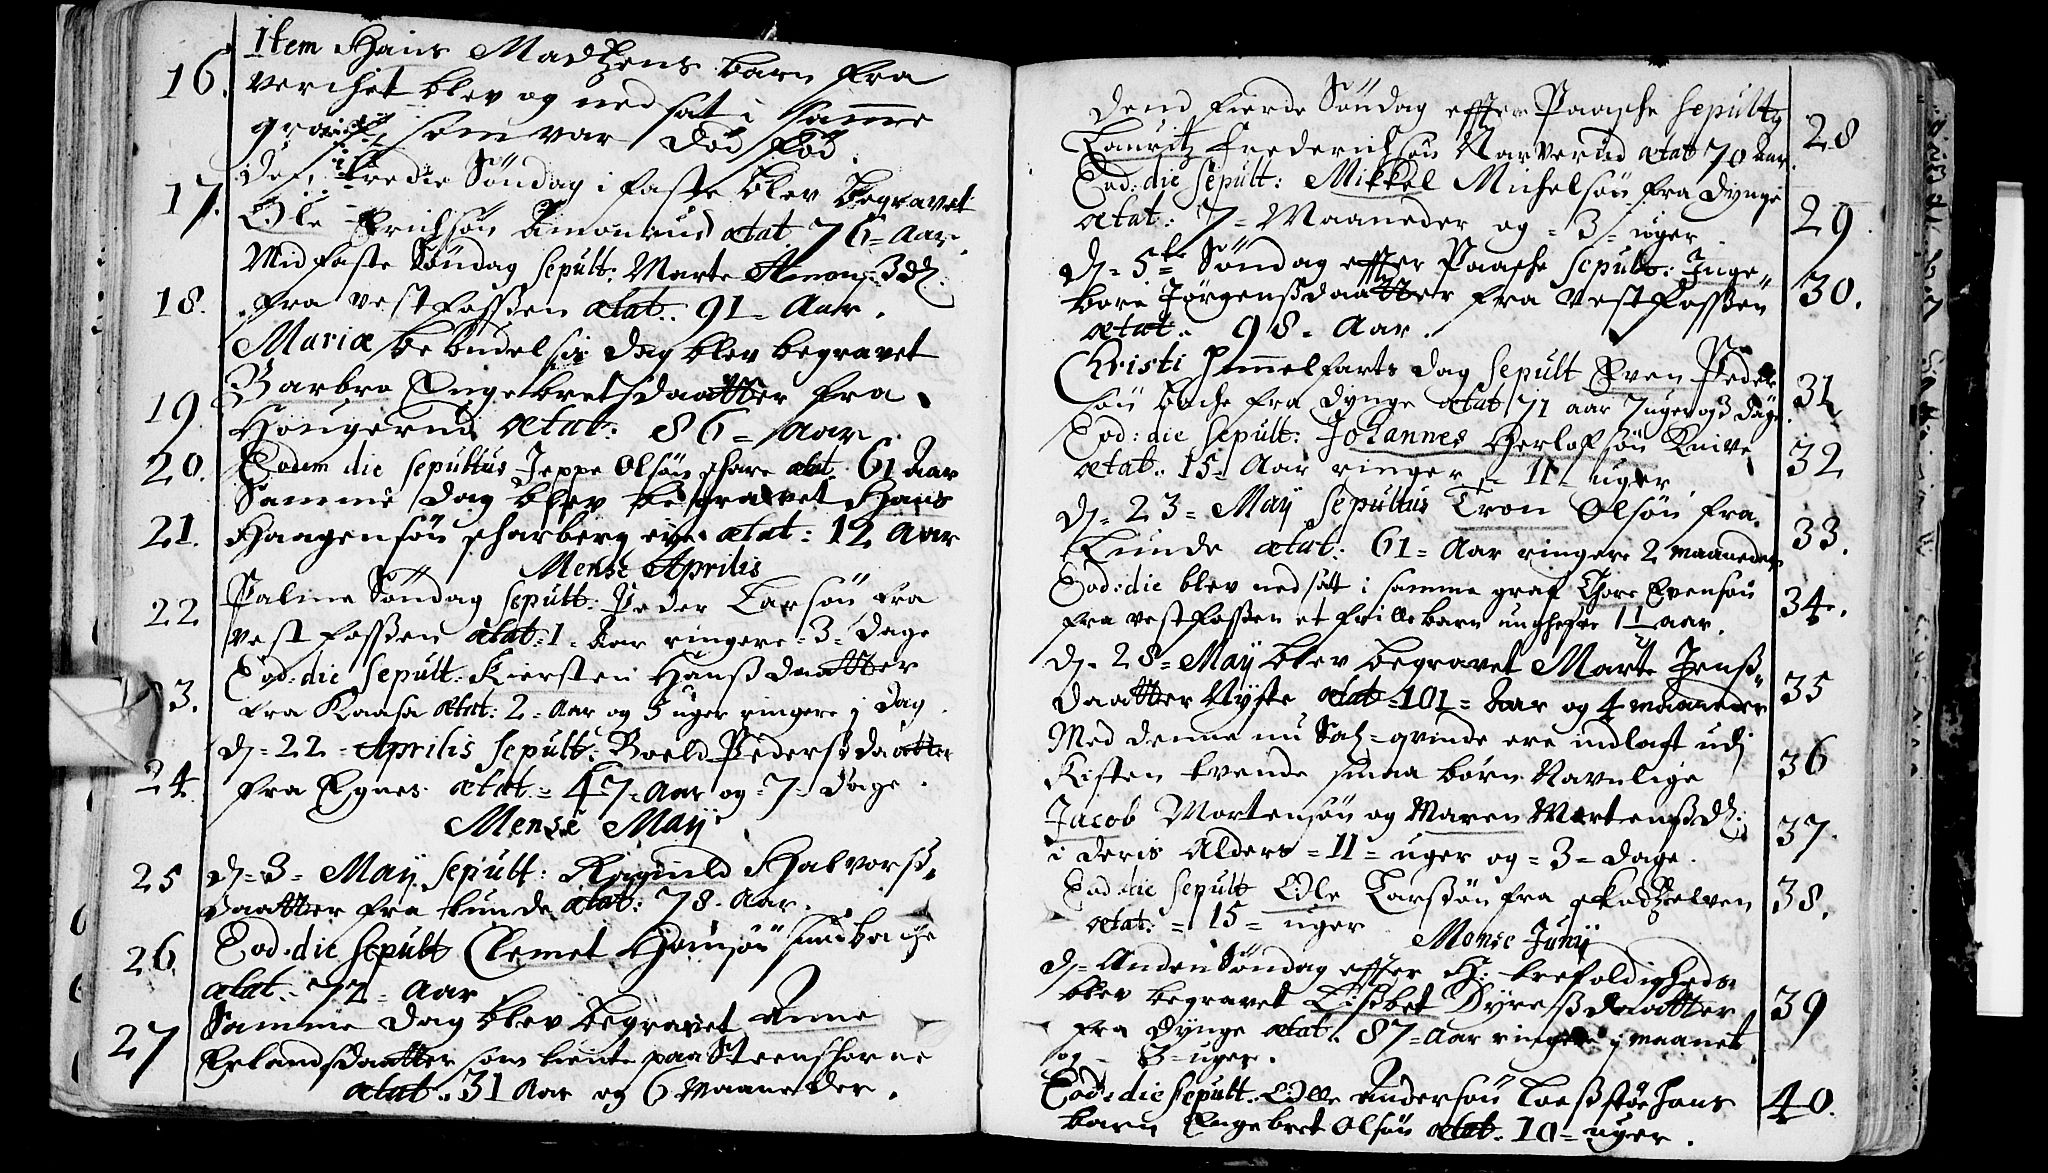 16. Item Hans Madtzens barn fra
Verchet blev og ned sat i samme
graf, som var død fød.
17. Den tredie Søndag i faste blev begravet
Ole Erichsøn Amonrud ætat 76 = Aar.
Midfaste Søndag sepult: Marte Amonsdt:
18. fra vestfossen ætat. 91 = Aar.
Mariæ bebudelses dag blev begravet
Barbra Engebretsdaatter fra
19. Hougerud ætat: 86 = Aar
20. Eodem die sepultus Jeppe Olsøn ætat. 61 Aar
Samme dag blev begravet Hans
21. Haagensøn ætat: 12 Aar
Mense Aprilis
Palme Søndag sepult: Peder Larsøn fra
22 vestfossen ætat: 1 = Aar ringere = 3 = dage
Eod: die sepult: Kiersten Hansdaatter
3. fra Kaasa ætat: 2 = Aar og 3 uger ringere j dag.
d. = 22 = Aprilis sepult: Boeld Pedersdaatter
24. fra Egnes ætat. = 47 = Aar og = 7 = dage.
Mense Maij
25 d. = 3 = Maij sepult: Ragnild Halvors=
daatter fra Lunde ætat: 78. Aar.
26. Eod: die sepult Clemet Hansøn
ætat. 72 = Aar
Samme dag blev begravet Anne
27 Erlandsdaatter som tiente paa Steenshorne
ætat. 31 Aar og 6 Maaneder.
Dend fierde Søndag effter Paasche sepultus
Lauritz Frederichsøn Narverud ætat 70 Aar. 28
Eod: die sepult: Mikkel Michelsøn fra Dynge
ætat: 7 = Maaneder og = 3 = uger. 29
d. = 5te Søndag effter Paasche sepult: Inge=
bore Jørgensdaatter fra Vestfossen 30.
ætat: 98 = Aar.
Christi Himmelfarts dag sepult Even Peder
søn Bache fra Dynge ætat 71 aar 7 uger og 3 dage. 31
Eod: die sepult: Johannes Herlofsøn Knive
ætat: 15 = Aar ringere = 11 = uger 32
d. = 23 = Maij sepultus Tron Olsøn fra
Lunde ætat: 61 = Aar ringere 2 maaneder 33.
Eod: die blev nedsatt i samme graf Thore Evensøn
fra vestfossen et frille barn ungefehr 1 1/2 aar. 34.
d. = 28 = Maij blev begravet Marte Jens=
daatter Nyste ætat = 101 = Aar og 4 maaneder 35
Med denne nu Sal: qvinde ere indlagt udj
Kisten tvende smaa børn Navnlige 36
Jacob Mortensøn og Maren Mortensdt: 37.
i deris Alders = 11 = uger og = 3 = dage.
Eod: die sepult Ole Larssøn fra Skodtzelven 38.
ætat: = 15 = uger
Mense Junij
d. = Anden Søndag effter H: trefoldigheds
blev begravet Lisbet Dyresdaatter
fra Dynge ætat. 87 = Aar ringere j maanet 39
og = 3 = uger.
Eod: die sepult: Olle Andersøn hans
barn Engebret Olsøn ætat. 10 = uger. 40.